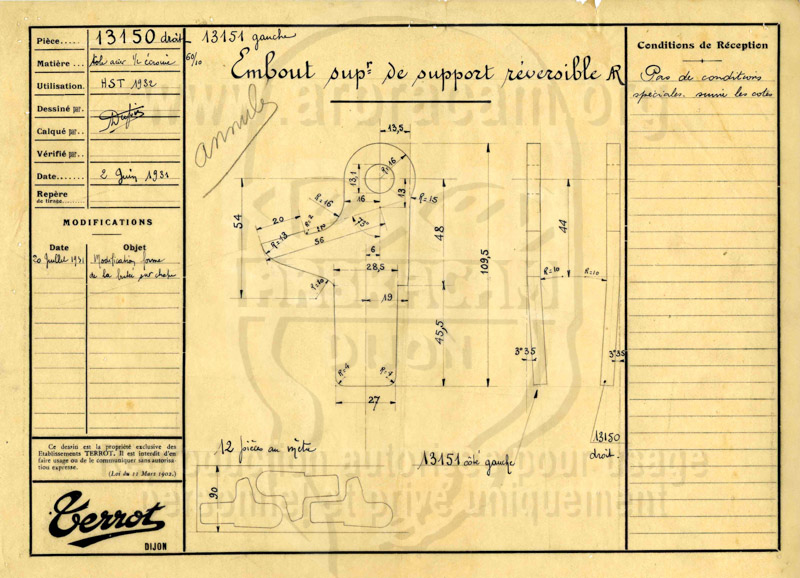 Pièce..... 13150 droit 13151 gauche
Matière... tôle acier 1/2 écrouie 60/10
Utilisation. HST 1932
Dessiné par.
Calqué par..
Vérifié par..
Date...... 2 Juin 1931
Repère
de tirage
MODIFICATIONS
Date Objet
20 Juillet 1931 Modification forme
de la butée sur
Ce dessin est la propriété exclusive des
Etablissements TERROT. Il est interdit d'en
faire usage ou de le communiquer sans autorisa-
tion expresse.
(Loi du 11 Mars 1902.)
Terrot
DIJON
Embout supr de support réversible AR
annulé
13,5
R=16
13,1
13
R=16
16
R=15
20
R=2
75°
R=13
56
54
6
48
109,5
28,5
19
45,5
R=4
R=4
27
44
R=10
R=10
3°35
3°35
12 pièces au mètre
90
13151 côté gauche
13150
droit.
Conditions de Réception
Pas de conditions
spéciales. suivre les cotes
ABRACAM
DIJON
usage
personnel et privé uniquement